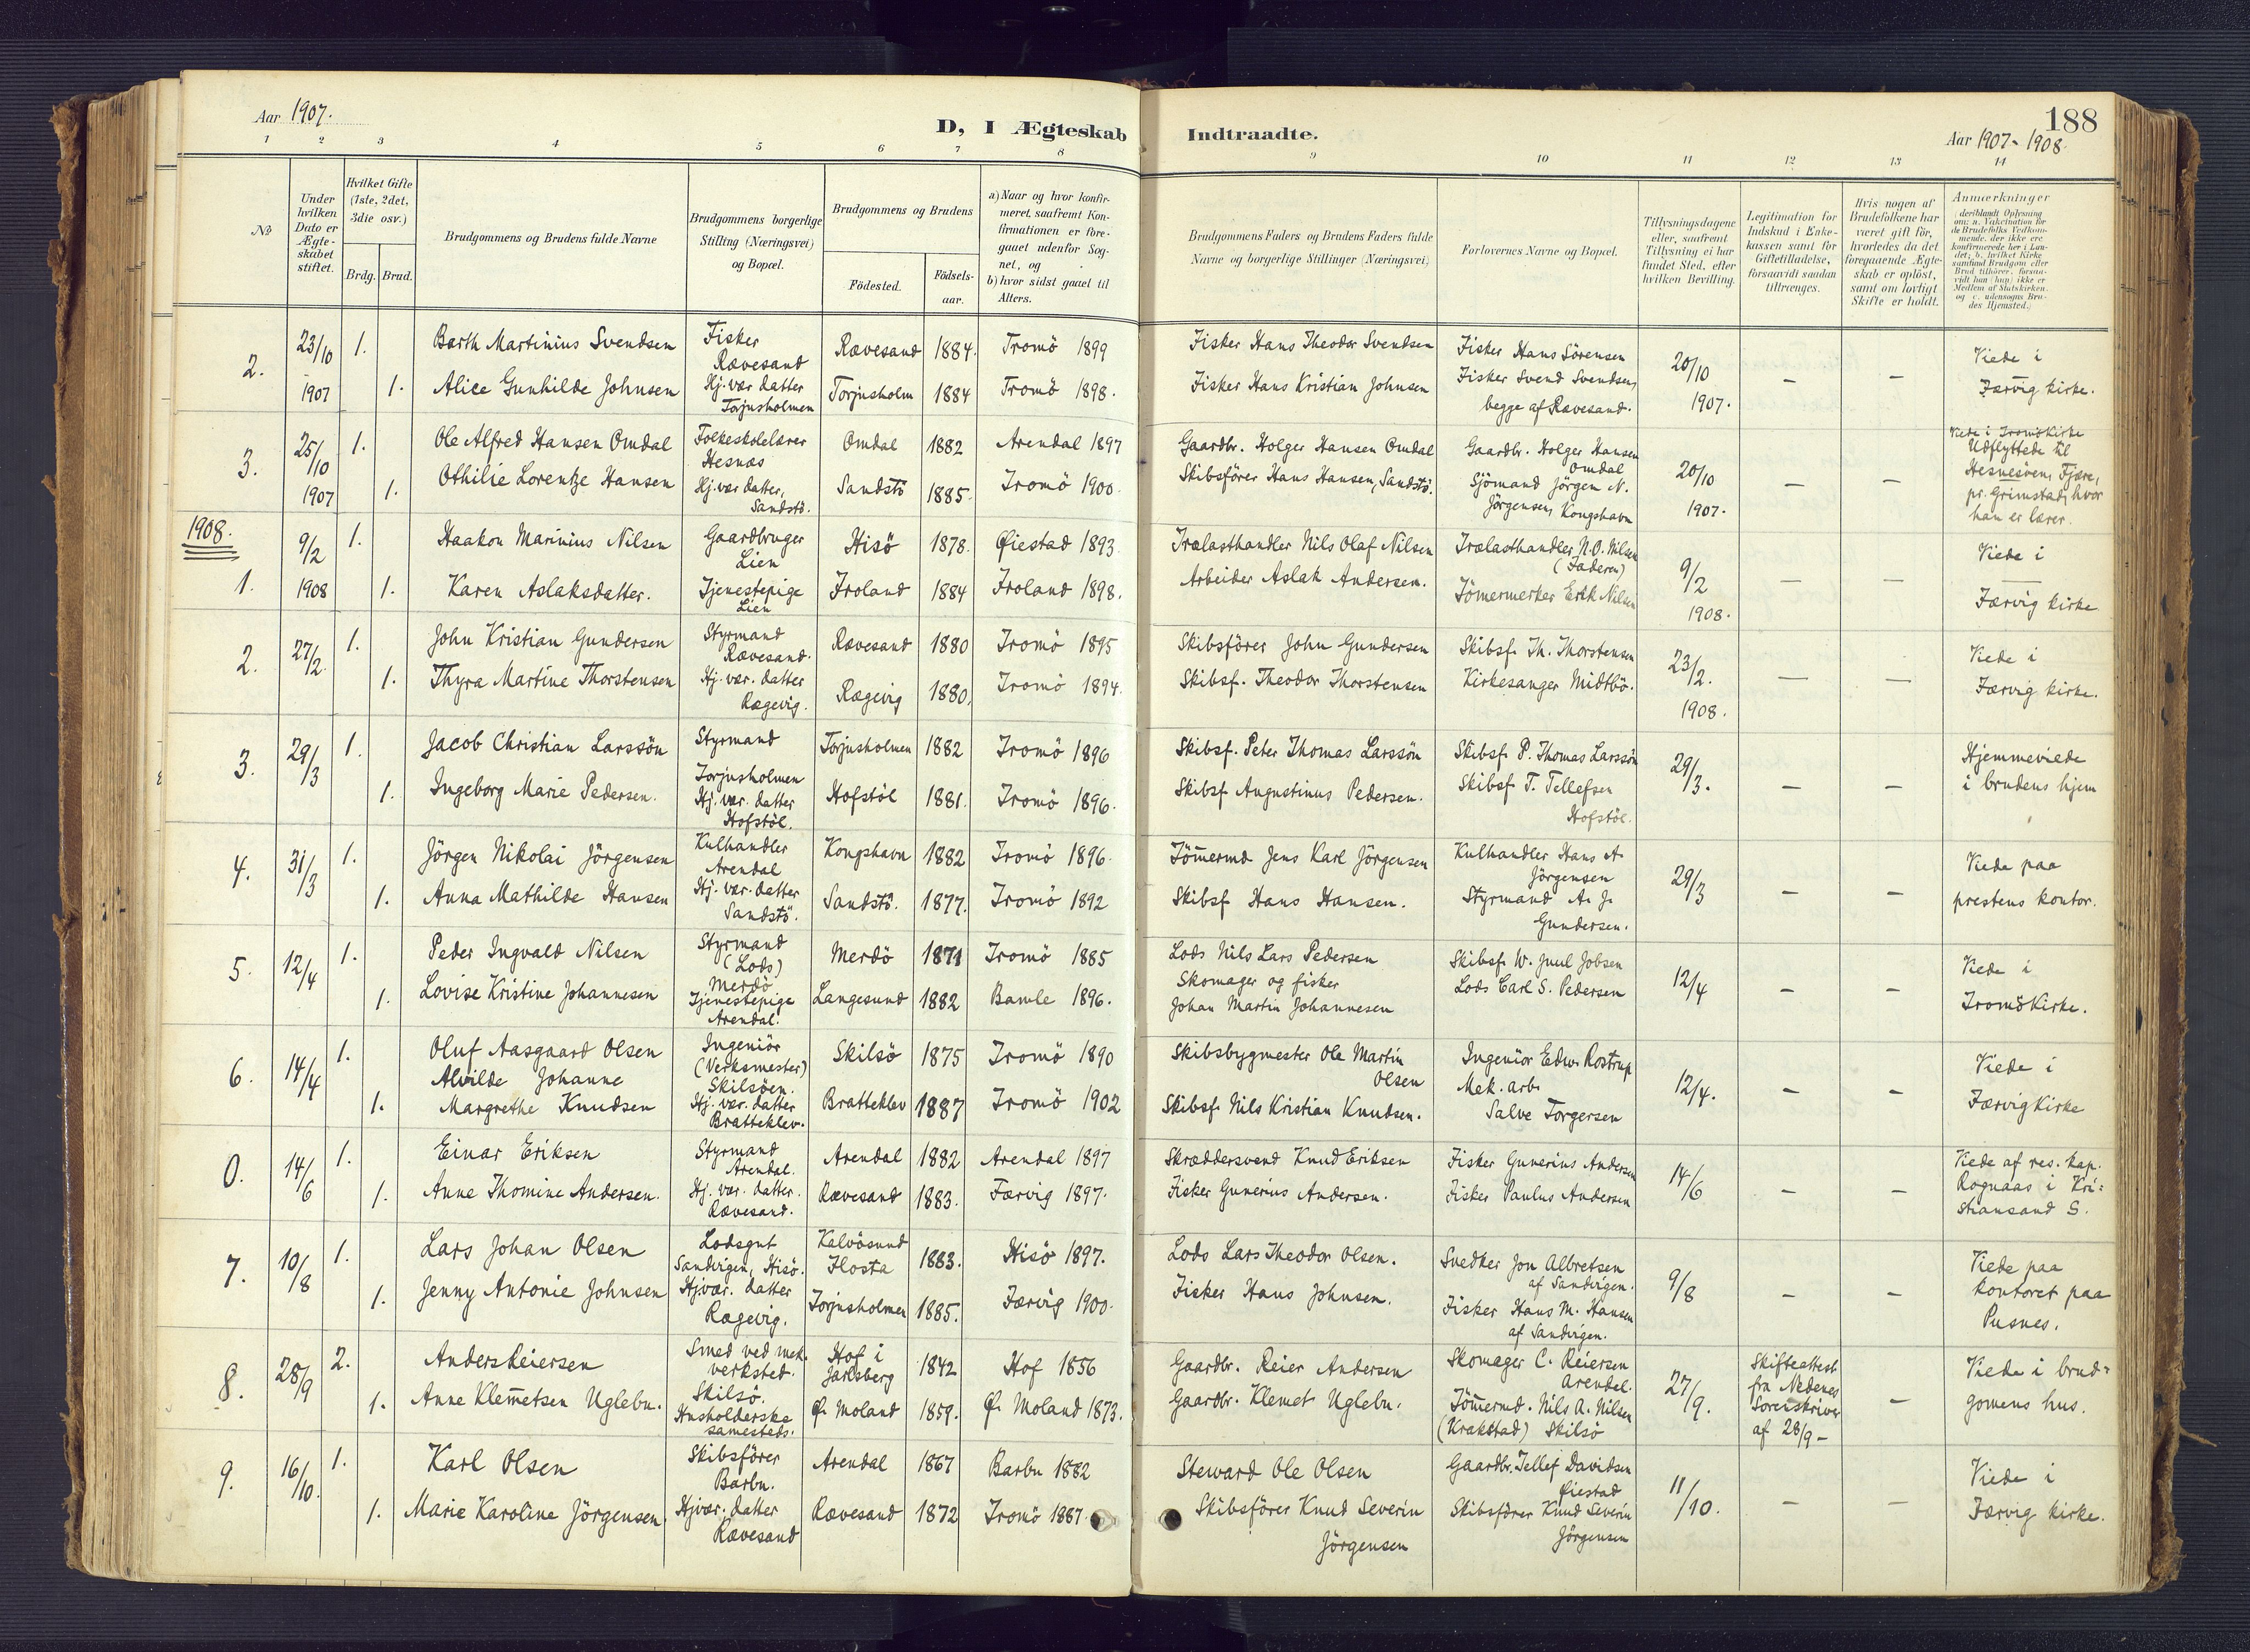 Aar 1907.
D, I Ægteskab Indtraadte.
188
Aar 1907-1908.
1 2 3 4 5 6 7 8 9 10 11 12 13 14
№
Under hvilken Dato er Ægteskabet stiftet.
Hvilket Gifte (1ste, 2det, 3die osv.)
Brdg. Brud.
Brudgommens og Brudens fulde Navne
Brudgommens borgerlige Stilling (Næringsvei) og Bopæl.
Brudgommens og Brudens
Födested.
Födselsaar.
a) Naar og hvor konfirmeret, saafremt Konfirmationen er foregaaet udenfor Sognet, og
b) hvor sidst gaaet til Alters.
Brudgommens Faders og Brudens Faders fulde Navne og borgerlige Stillinger (Næringsvei)
Forlovernes Navne og Bopæl.
Tillysningsdagene eller, saafremt Tillysning ei har fundet Sted, efter hvilken Bevilling.
Legitimation for Indskud i Enkekassen samt for Giftetilladelse, forsaavidt saadan tiltrænges.
Hvis nogen af Brudefolkene har været gift för, hvorledes da det foregaaende Ægteskab er oplöst, samt om lovligt Skifte er holdt.
Anmærkninger
(deriblandt Oplysning om: a. Vakcination for de Brudefolks Vedkommende, der ikke ere konfirmerede her i Landet; b. hvilket Kirkesamfund Brudgom eller Brud tilhörer, forsaavidt han (hun) ikke er Medlem af Statskirken, og c. udensogns Brudes Hjemsted.)
2. 23/10 1907 1. Barth Martinius Svendsen Fisker Rævesand Rævesand 1884. Tromö 1899 Fisker Hans Theodor Svendsen Fisker Hans Sörensen 20/10 1907. - - Viede i Færvig kirke.
1. Alice Gunhilde Johnsen Hj. vær datter Torjusholmen Torjusholm 1884 Tromö 1898. Fisker Hans Kristian Johnsen Fisker Svend Svendsen, begge af Rævesand.
3. 25/10 1907 1. Ole Alfred Hansen Omdal Folkeskolelærer Hesnæs Omdal 1882 Arendal 1897 Gaardbr. Holger Hansen Omdal Gaardbr. Holger Hansen Omdal 20/10 1907. - - Viede i Tromö Kirke Udflyttede til Hesnesöen, Fjære, pr. Grimstad, hvor han er lærer.
1. Othilie Lorentze Hansen Hj. vær datter, Sandstö. Sandstö 1885. Tromö 1900. Skibsförer Hans Hansen, Sandstö. Sjömand Jörgen N. Jörgensen, Kongshavn
1908.
1. 9/2 1908 1. Haakon Marinius Nilsen Gaardbruger Lien Hisö 1878. Öiestad 1893. Trælasthandler Nils Olaf Nilsen Trælasthandler N. O. Nilsen (Faderen) 9/2 1908. - - Viede i Færvig kirke
1. Karen Aslaksdatter. Tjenestepige Lien Froland 1884 Froland 1898. Arbeider Aslak Andersen. Tömermerker Erik Nilsen
2. 27/2. 1. John Kristian Gundersen Styrmand Rævesand. Rævesand 1880 Tromö 1895 Skibsförer John Gundersen Skibsf. Th. Thorstensen 23/2. 1908. - - Viede i Færvig kirke.
1. Thyra Martine Thorstensen Hj. vær. datter Rægevig. Rægevig 1880. Tromö 1894. Skibsf. Theodor Thorstensen Kirkesanger Midtbö.
3. 29/3 1. Jacob Christian Larssön Styrmand Torjusholmen Torjusholmen 1882 Tromö 1896 Skibsf. Peter Thomas Larssön Skibsf. P. Thomas Larssön 29/3. - - Hjemmeviede i brudens hjem
1. Ingeborg Marie Pedersen. Hj. vær. datter Hofstöl. Hofstöl 1881. Tromö 1896. Skibsf Augustinus Pedersen. Skibsf T. Tellefsen Hofstöl.
4. 31/3 1. Jörgen Nikolai Jörgensen Kulhandler Arendal Kongshavn 1882 Tromö 1896. Tömermd Jens Karl Jörgensen Kulhandler Hans A. Jörgensen 29/3 - - Viede paa prestens kontor.
1. Anna Mathilde Hansen Hj. vær. datter Sandstö. Sandstö. 1877. Tromö 1892 Skibsf Hans Hansen. Styrmand A. J. Gundersen.
5. 12/4 1. Peder Ingvald Nilsen Styrmand (Lods) Merdö Merdö 1871 Tromö 1885 Lods Nils Lars Pedersen Skibsf. W. Juul Jobsen 12/4 - - Viede i Tromö Kirke.
1. Lovise Kristine Johannesen Tjenestepige Arendal. Langesund 1882 Bamle 1896. Skomager og fisker Johan Martin Johannesen Lods Carl S. Pedersen
6. 14/4 1. Oluf Aasgaard Olsen Ingeniör (Verksmester) Skilsöen. Skilsö 1875 Tromö 1890 Skibsbygmester Ole Martin Olsen Ingeniör Edw. Rostrup 12/4. - - Viede i Færvig Kirke
1. Alvilde Johanne Margrethe Knudsen Hj. vær. datter Bratteklev. Bratteklev 1887 Tromö 1902 Skibsf. Nils Kristian Knudsen. Mek. arb. Salve Torgersen
0. 14/6 1. Einar Eriksen Styrmand Arendal. Arendal 1882 Arendal 1897 Skræddersvend Knud Eriksen Fisker Gunerius Andersen 14/6 - - Viede af res. kap. Rognaas i Kristiansand S.
1. Anne Thomine Andersen. Hj. vær. datter. Rævesand. Rævesand 1883. Færvig 1897. Fisker Gunerius Andersen. Fisker Paulus Andersen
7. 10/8 1. Lars Johan Olsen Lodsgut Sandvigen, Hisö. Kalvösund Flosta 1883. Hisö 1897. Lods Lars Theodor Olsen. Snedker Jon Albretsen af Sandvigen. 9/8 - - Viede paa kontoret paa Pusnes.
1. Jenny Antonie Johnsen Hj.vær. datter Rægevig. Torjusholmen 1885. Færvig 1900. Fisker Hans Johnsen. Fisker Hans M. Hansen af Sandvigen.
8. 28/9 2. Anders Reiersen Smed ved mek. verksted. Skilsö. Hof i Jarlsberg 1842 Hof 1856 Gaardbr. Reier Andersen Skomager C. Reiersen Arendal. 27/9. Skifteattest fra Nedenes Sorenskriver af 28/9 - - Viede i brudgomens hus.
1. Anne Klemetsen Uglebu. Husholderske samesteds. Ö. Moland 1859. Ö. Moland 1873. Gaardbr. Klemet Uglebu. Tömermd. Nils A. Nilsen (Krakstad) Skilsö
9. 16/10. 1. Karl Olsen Skibsförer Barbu. Arendal 1867 Barbu 1882 Steward Ole Olsen Gaardbr. Tellef Davidsen Öiestad 11/10. - - Viede i Færvig kirke.
1. Marie Karoline Jörgensen. Hj.vær. datter Rævesand Rævesand 1872 Tromö 1887. Skibsförer Knud Severin Jörgensen Skibsförer Knud Severin Jörgensen